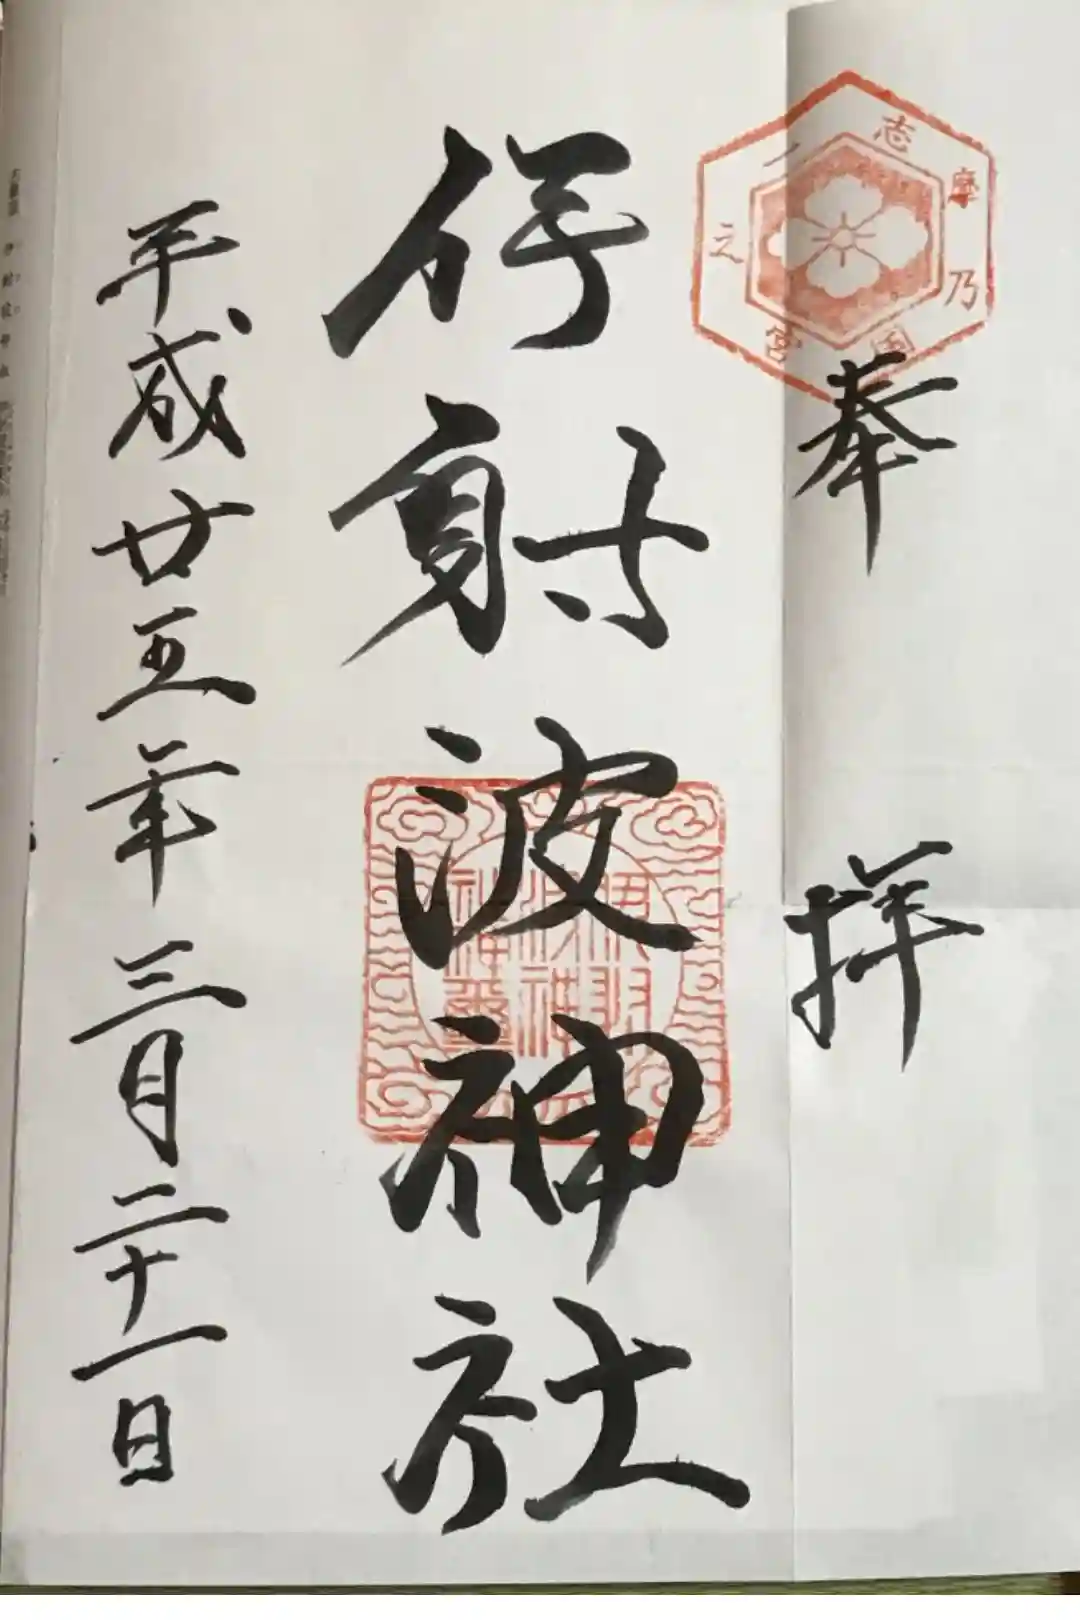 志摩乃国
一之宮
奉拝
伊射波神社
伊射
波神
社神璽
平成廿五年三月二十一日